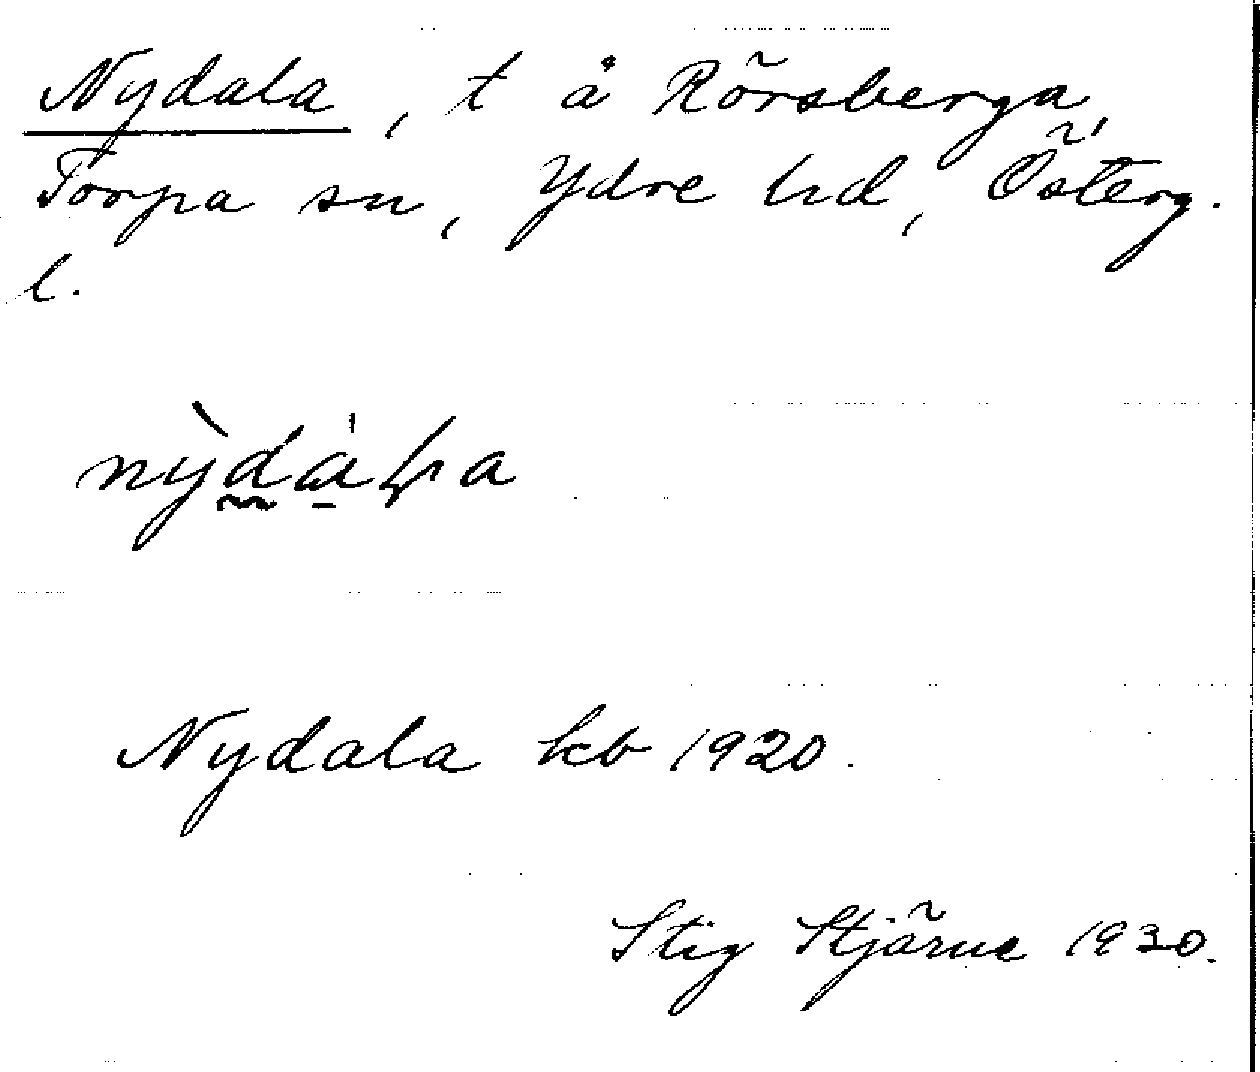 Nydala, t å Rörsberga,
Torpa sn, Ydre hd, Österg.
l.
Nydala kb 1920.
Stig Stjärne 1930.